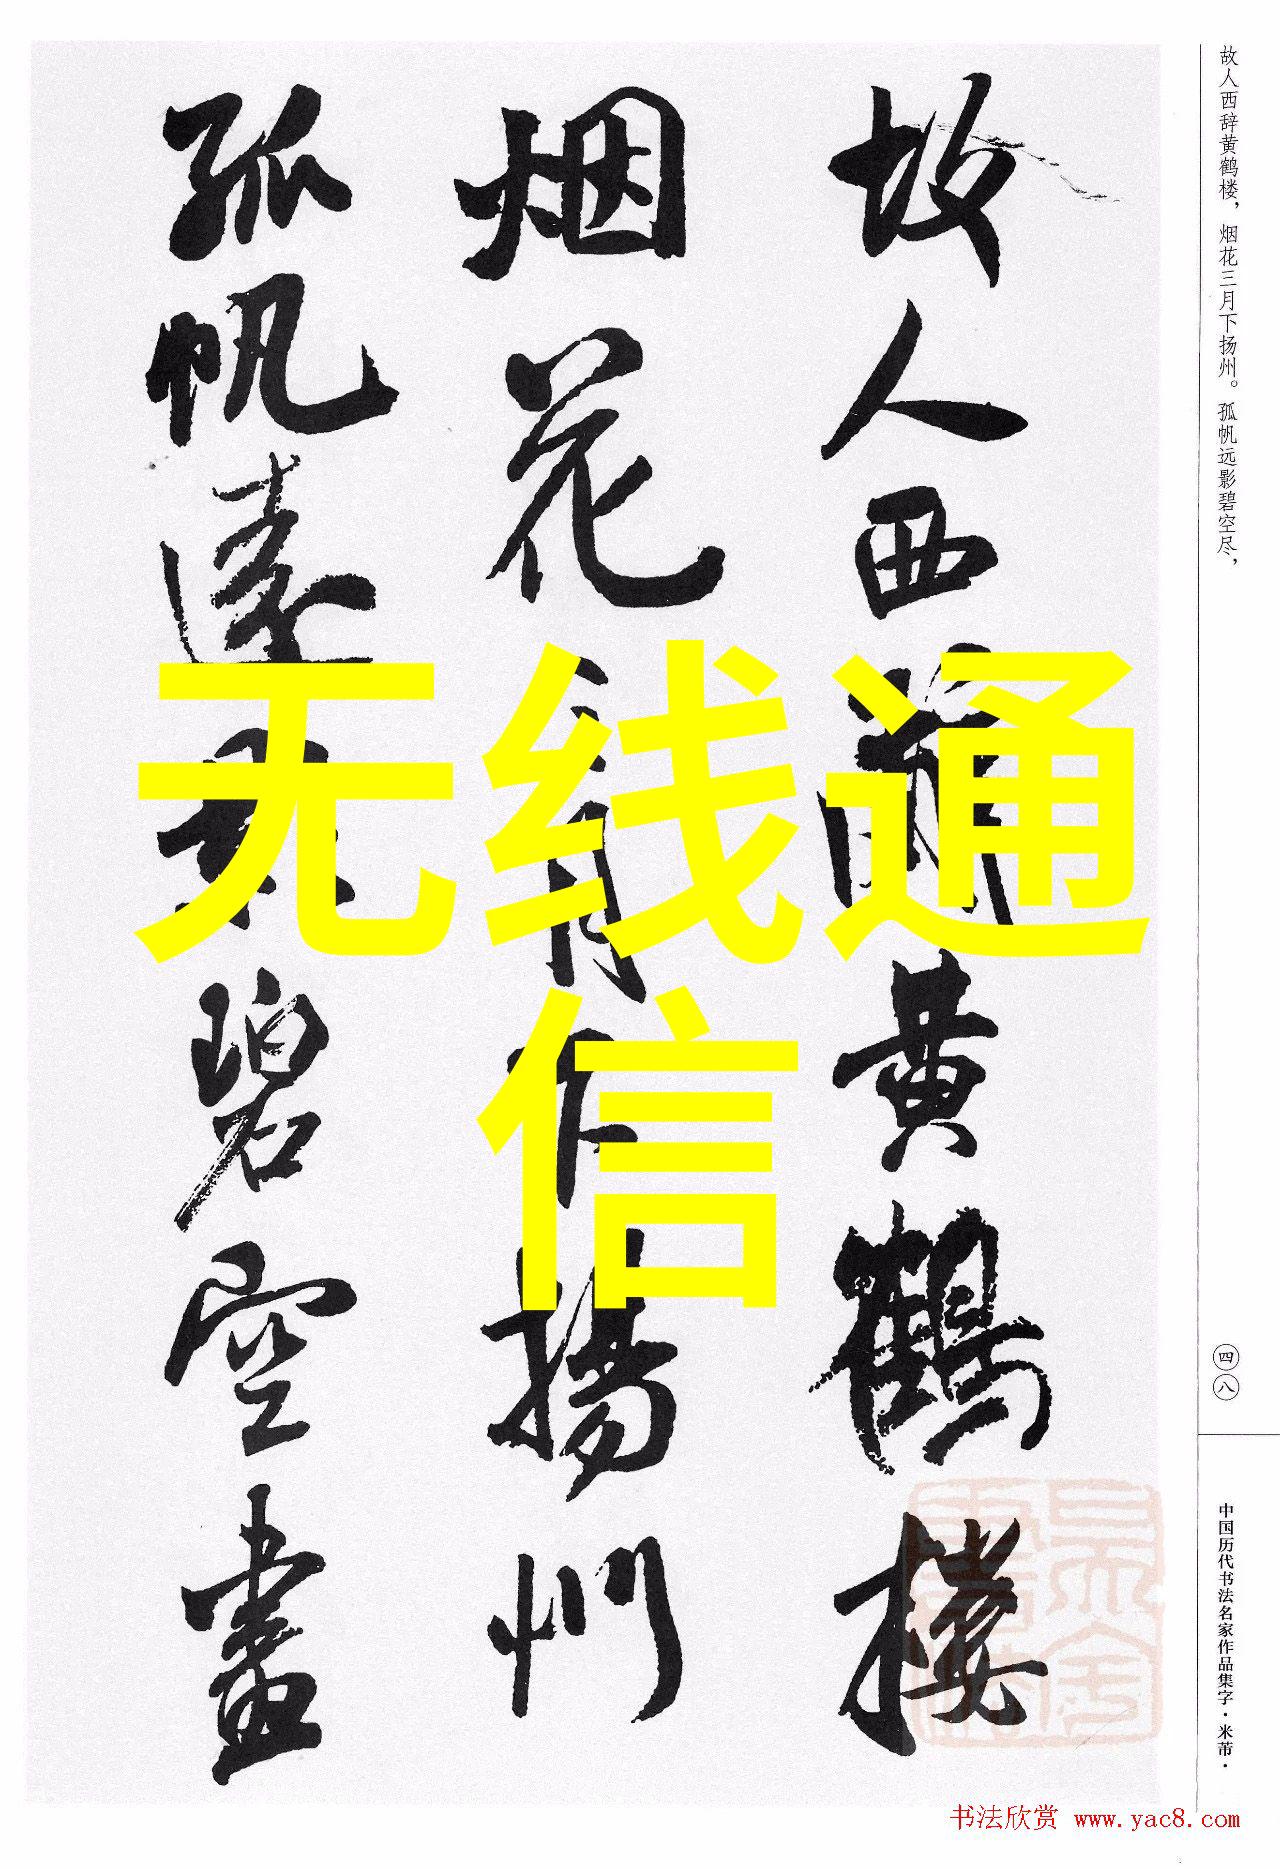 故人西辞黄鹤楼，烟花三月下扬州。孤帆远影碧空尽，
四八
中国历代书法名家作品集字·米芾·
故人西辭黄鶴樓
烟花三月下揚州
孤帆遠影碧空盡
无线通
信
书法欣赏 www.yac8.com